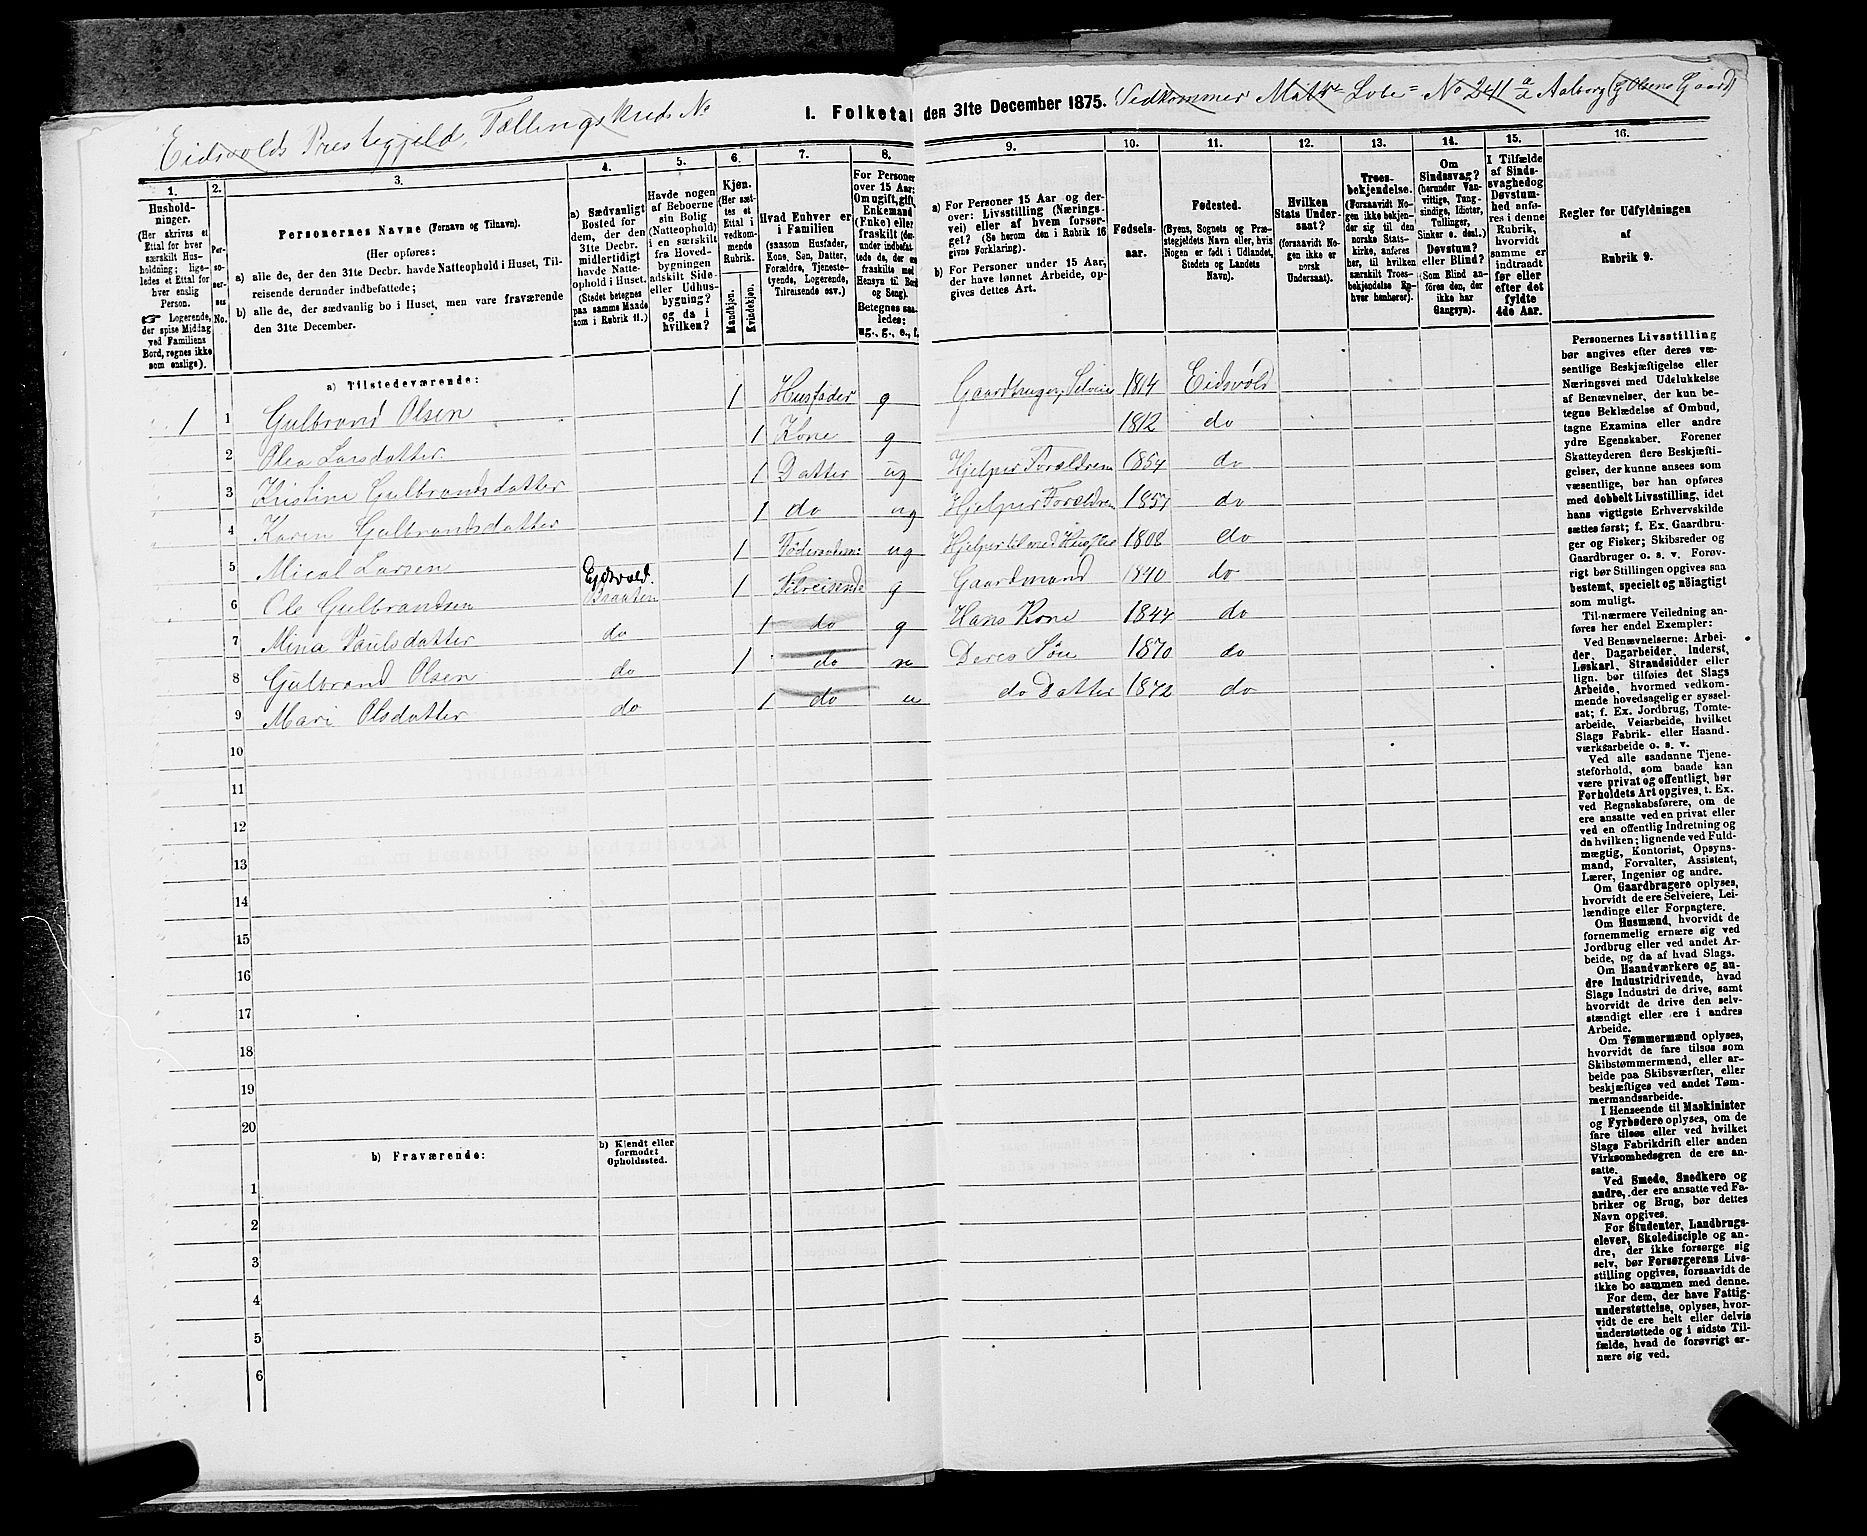 Eidsvolds Prestegjeld, Tællingskreds No
I. Folketal den 31te December 1875.
Vedkommer Matr Løbe = No 241 a Aaborg (G. Olsens Gaard)
1. 2. 3. 4. 5. 6. 7. 8. 9. 10. 11. 12. 13. 14. 15. 16.
Hushold-
ninger.
(Her skrives et
Ettal for hver
særskilt Hus-
holdning; lige-
ledes et Ettal for
hver enslig
Person.
☞ Logerende,
der spise Middag
ved Familiens
Bord, regnes ikke
som enslige).
Per-
so-
ner-
nes
No.
Personernes Navne (Fornavn og Tilnavn).
(Her opføres:
a) alle de, der den 31te Decbr. havde Natteophold i Huset, Til-
reisende derunder indbefattede;
b) alle de, der sædvanlig bo i Huset, men vare fraværende
den 31te December.
a) Sædvanligt
Bosted for
dem, der den
31te Decbr.
midlertidigt
havde Natte-
ophold i Huset.
(Stedet betegnes
paa samme Maade
som i Rubrik 11.)
Havde nogen
af Beboerne
sin Bolig
(Natteophold)
i en særskilt
fra Hoved-
bygningen
adskilt Side-
eller Udhus-
bygning?
og da i
hvilken?
Kjøn.
(Her sæt-
tes et
Ettal i
vedkom-
mende
Rubrik.
Mandkjøn.
Kvindekjøn.
Hvad Enhver er
i Familien
(saasom Husfader,
Kone, Søn, Datter,
Forældre, Tjeneste-
tyende, Logerende,
Tilreisende osv.)
For Personer
over 15 Aar:
Om ugift, gift,
Enkemand
(Enke) eller
fraskilt (der-
under indbefat-
tede da, der ere
fraskilte med
Hensyn til Bord
og Seng).
Betegnes saa-
ledes:
ug., g., e., f.
a) For Personer 15 Aar og der-
over: Livsstilling (Nærings-
vei) eller af hvem forsør-
get? (Se herom den i Rubrik 16
givne Forklaring).
b) For Personer under 15 Aar,
der have lønnet Arbeide, op-
gives dettes Art.
Fødsels-
aar.
Fødested.
(Byens, Sognets og Præ-
stegjeldets Navn eller, hvis
Nogen er født i Udlandet,
Stedets og Landets
Navn).
Hvilken
Stats Under-
saat?
(forsaavidt No-
gen ikke er
norsk
Undersaat).
Troes-
bekjendelse.
(Forsaavidt No-
gen ikke bekjen-
der sig til den
norske Stats-
kirke, anføres
her, til hvilken
særskilt Troes-
bekjendelse En-
hver henhører).
Om
Sindssvag?
(herunder Van-
vittige, Tung-
sindige, Idioter,
Tullinger,
Sinker o. desl.)
Døvstum?
eller Blind?
(Som Blind an-
føres den, der
ikke har
Gangsyn).
I Tilfælde
af Sinds-
svaghed og
Døvstum-
hed anfø-
res i denne
Rubrik,
hvorvidt
samme er
indtraadt
før eller
efter det
fyldte
4de Aar.
Regler for Udfyldningen
af
Rubrik 9.
a) Tilstedeværende:
1 1 Gulbrand Olsen 1 Husfader g Gaardbruger, Selveier 1814 Eidsvold
2 Olea Larsdatter 1 Kone g 1812 do
3 Kristine Gulbrandsdatter 1 Datter ug Hjelper Forældrene 1854 do
4 Karen Gulbrandsdatter 1 do ug Hjelper Forældren 1857 do
5 Micel Larsen 1 ug Hjelper til med 1808 do
6 Ole Gulbrandsen Eidsvold. Braaten 1 Tilreisende g Gaardmand 1840 do
7 Mina Paulsdatter do 1 do g Hans Kone 1844 do
8 Gulbrand Olsen do 1 do u Deres Søn 1870 do
9 Mari Olsdatter do 1 do u do Datter 1872 do
10
11
12
13
14
15
16
17
18
19
20
b) Fraværende:
b) Kjendt eller
formodet
Opholdssted.
1
2
3
4
5
6
Personernes Livsstilling
bør angives efter deres væ-
sentlige Beskjæftigelse eller
Næringsvei med Udelukkelse
af Benævnelser, der kun be-
tegne Beklædelse af Ombud,
tagne Examina eller andre
ydre Egenskaber. Forener
Skatteyderen flere Beskjæfti-
gelser, der kunne ansees som
væsentlige, bør han opføres
med dobbelt Livsstilling, idet
hans vigtigste Erhvervskilde
sættes først; f. Ex. Gaardbru-
ger og Fisker; Skibsreder og
Gaardbruger o. s. v. Forøv-
rigt bør Stillingen opgives saa
bestemt, specielt og nøiagtigt
som muligt.
Til nærmere Veiledning an-
føres her endel Exempler:
Ved Benævnelserne: Arbei-
der, Dagarbeider, Inderst,
Løskarl, Strandsidder eller
lign. bør tilføies det Slags
Arbeide, hvormed vedkom-
mende hovedsagelig er syssel-
sat; f. Ex. Jordbrug, Tomte-
arbeide, Veiarbeide, hvilket
Slags Fabrik- eller Haand-
værksarbeide o. s. v.
Ved alle saadanne Tjene-
steforhold, som baade kan
være privat og offentligt, bør
Forholdets Art opgives, t. Ex.
ved Regnskabsførere, om de
ere ansatte ved en privat eller
ved en offentlig Indretning og
da hvilken; lignende ved Fuld-
mægtig, Kontorist, Opsyns-
mand, Forvalter, Assistent,
Lærer, Ingeniør og andre.
Om Gaardbrugere oplyses,
hvorvidt de ere Selveiere, Lei-
lændinge eller Forpagtere.
Om Husmænd, hvorvidt de
fornemmelig ernære sig ved
Jordbrug eller ved andet Ar-
beide, og da af hvad Slags.
Om Haandværkere og an-
dre Industridrivende, hvad
Slags Industri de drive, samt
hvorvidt de drive den selv-
stændigt eller ere i andres
Arbeide.
Om Tømmermænd oplyses,
hvorvidt de fare tilsøs som
Skibstømmermænd, eller ar-
beide paa Skibsværfter, eller
beskjæftiges ved andet Tøm-
mermandsarbeide.
I Henseende til Maskinister
og Fyrbødere oplyses, om de
fare tilsøs eller ved hvilket
Slags Fabrikdrift eller anden
Virksomhedsgren de ere an-
satte.
Ved Smede, Snedkere og
andre, der ere ansatte ved Fa-
briker og Brug, bør dettes
Navn opgives.
For Studenter, Landbrugs-
elever, Skoledisciple og an-
dre, der ikke forsørge sig
selv, bør Forsørgerens Livs-
stilling opgives, forsaavidt de
ikke bo sammen med denne.
For dem, der have Fattig-
understøttelse, oplyses, hvor-
vidt de ere helt eller delvis
understøttede og i sidste Til-
fælde, hvad de forøvrigt er-
nære sig ved.